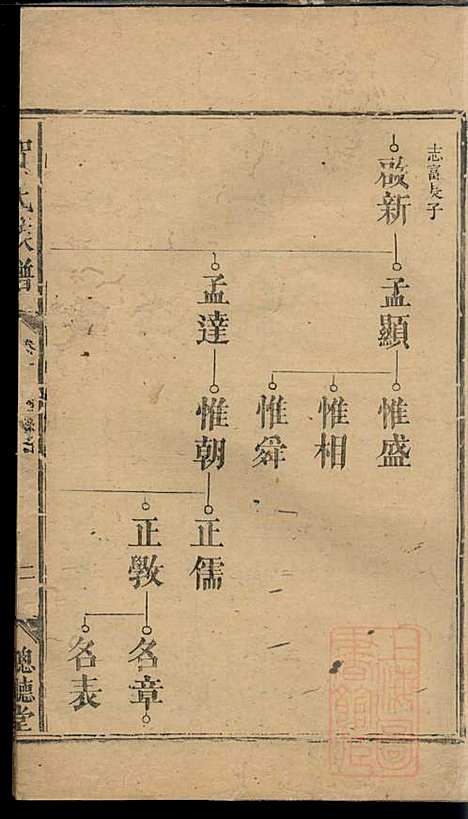 志富長子
啟新
孟顯
孟達
惟盛
惟相
惟舜
惟朝
正儒
正斆
名章
名表
氏族譜
聰聽堂